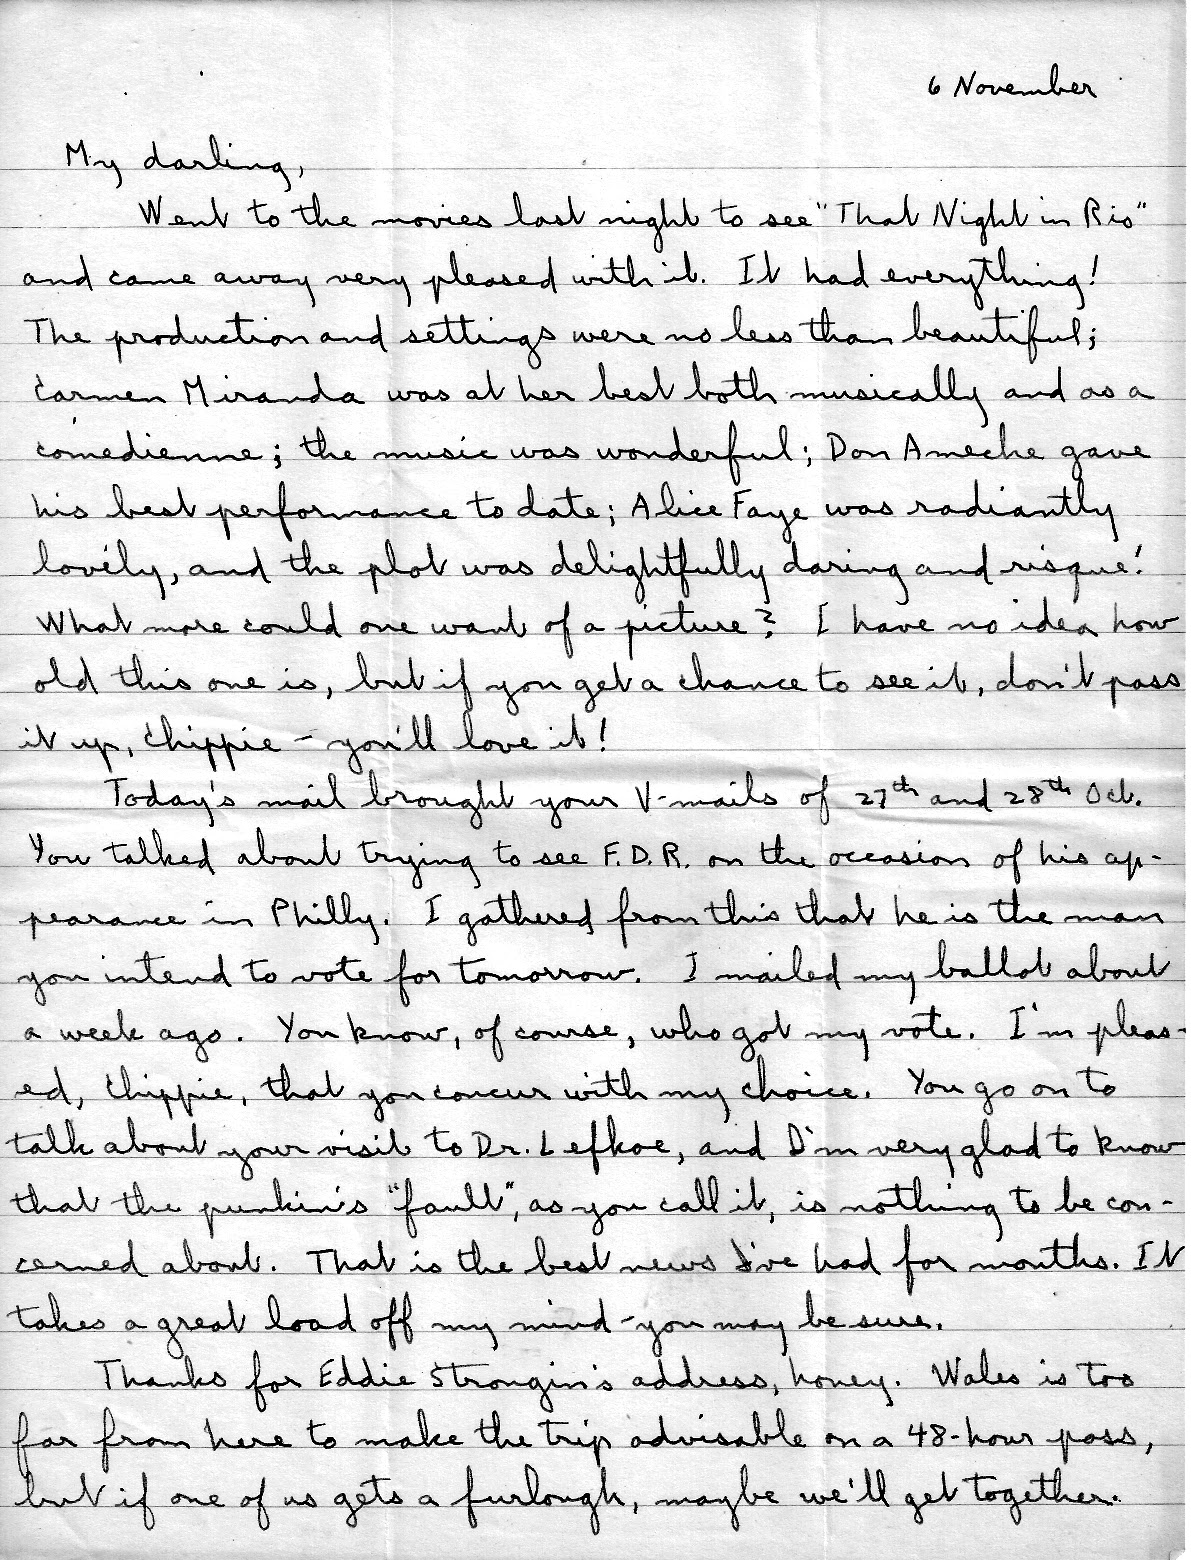 6 November
My darling,
Went to the movies last night to see "That Night in Rio"
and came away very pleased with it. It had everything!
The production and settings were no less than beautiful;
Carmen Miranda was at her best both musically and as a
comedienne; the music was wonderful; Don Ameche gave
his best performance to date; Alice Faye was radiantly
lovely, and the plot was delightfully daring and risque!
What more could one want of a picture? I have no idea how
old this one is, but if you get a chance to see it, don't pass
it up, Chippie - you'll love it!
Today's mail brought your V-mails of 27th and 28th Oct.
You talked about trying to see F.D.R. on the occasion of his ap-
pearance in Philly. I gathered from this that he is the man
you intend to vote for tomorrow. I mailed my ballot about
a week ago. You know, of course, who got my vote. I'm pleas-
ed, Chippie, that you concur with my choice. You go on to
talk about your visit to Dr. Lefkoe, and I'm very glad to know
that the punkin's "fault", as you call it, is nothing to be con-
cerned about. That is the best news I've had for months. It
takes a great load off my mind - you may be sure.
Thanks for Eddie Strongin's address, honey. Wales is too
far from here to make the trip advisable on a 48-hour pass,
but if one of us gets a furlough, maybe we'll get together.